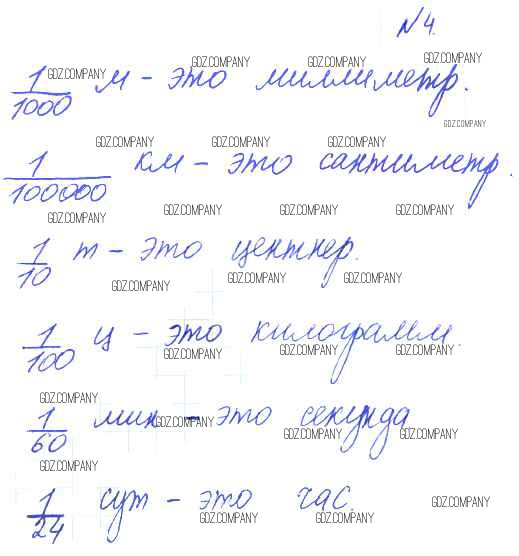 №4.
GDZ.COMPANY GDZ.COMPANY GDZ.COMPANY GDZ.COMPANY
1/1000 м - это миллиметр.
GDZ.COMPANY
GDZ.COMPANY GDZ.COMPANY GDZ.COMPANY
1/100000 км - это сантиметр.
GDZ.COMPANY GDZ.COMPANY GDZ.COMPANY GDZ.COMPANY
1/10 т - это центнер.
GDZ.COMPANY GDZ.COMPANY GDZ.COMPANY
1/100 ц - это килограмм.
GDZ.COMPANY GDZ.COMPANY GDZ.COMPANY
GDZ.COMPANY
1/60 мин - это секунда
GDZ.COMPANY GDZ.COMPANY GDZ.COMPANY
GDZ.COMPANY
1/24 сут - это час.
GDZ.COMPANY GDZ.COMPANY GDZ.COMPANY